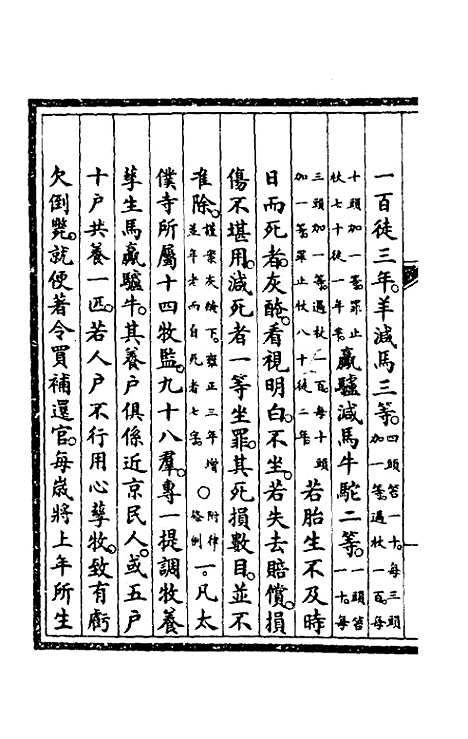 一百徒三年。羊減馬三等。四頭笞一十。每三頭加一等。過杖一百。每
十頭加一等。罪止杖七十徒一年半。驘驢減馬牛駝二等。一頭笞一十。每
三頭加一等。過杖一百。每十頭加一等。罪止杖八十徒二年。若胎生不及時
日而死者。灰醃。看視明白。不坐。若失去賠償。損
傷不堪用。減死者一等坐罪。其死損數目。並不
准除。謹案灰醃下。雍正三年增並年老而自死者七字。○附律條例一。凡太
僕寺所屬十四牧監。九十八羣。專一提調牧養
孳生馬驘驢牛。其養戶俱係近京民人。或五戶
十戶共養一匹。若人戶不行用心孳牧。致有虧
欠倒斃。就便著令買補還官。每歲將上年所生